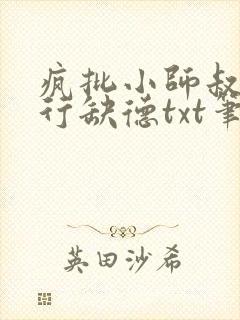 疯批小师叔
行缺德txt笔
英田沙希